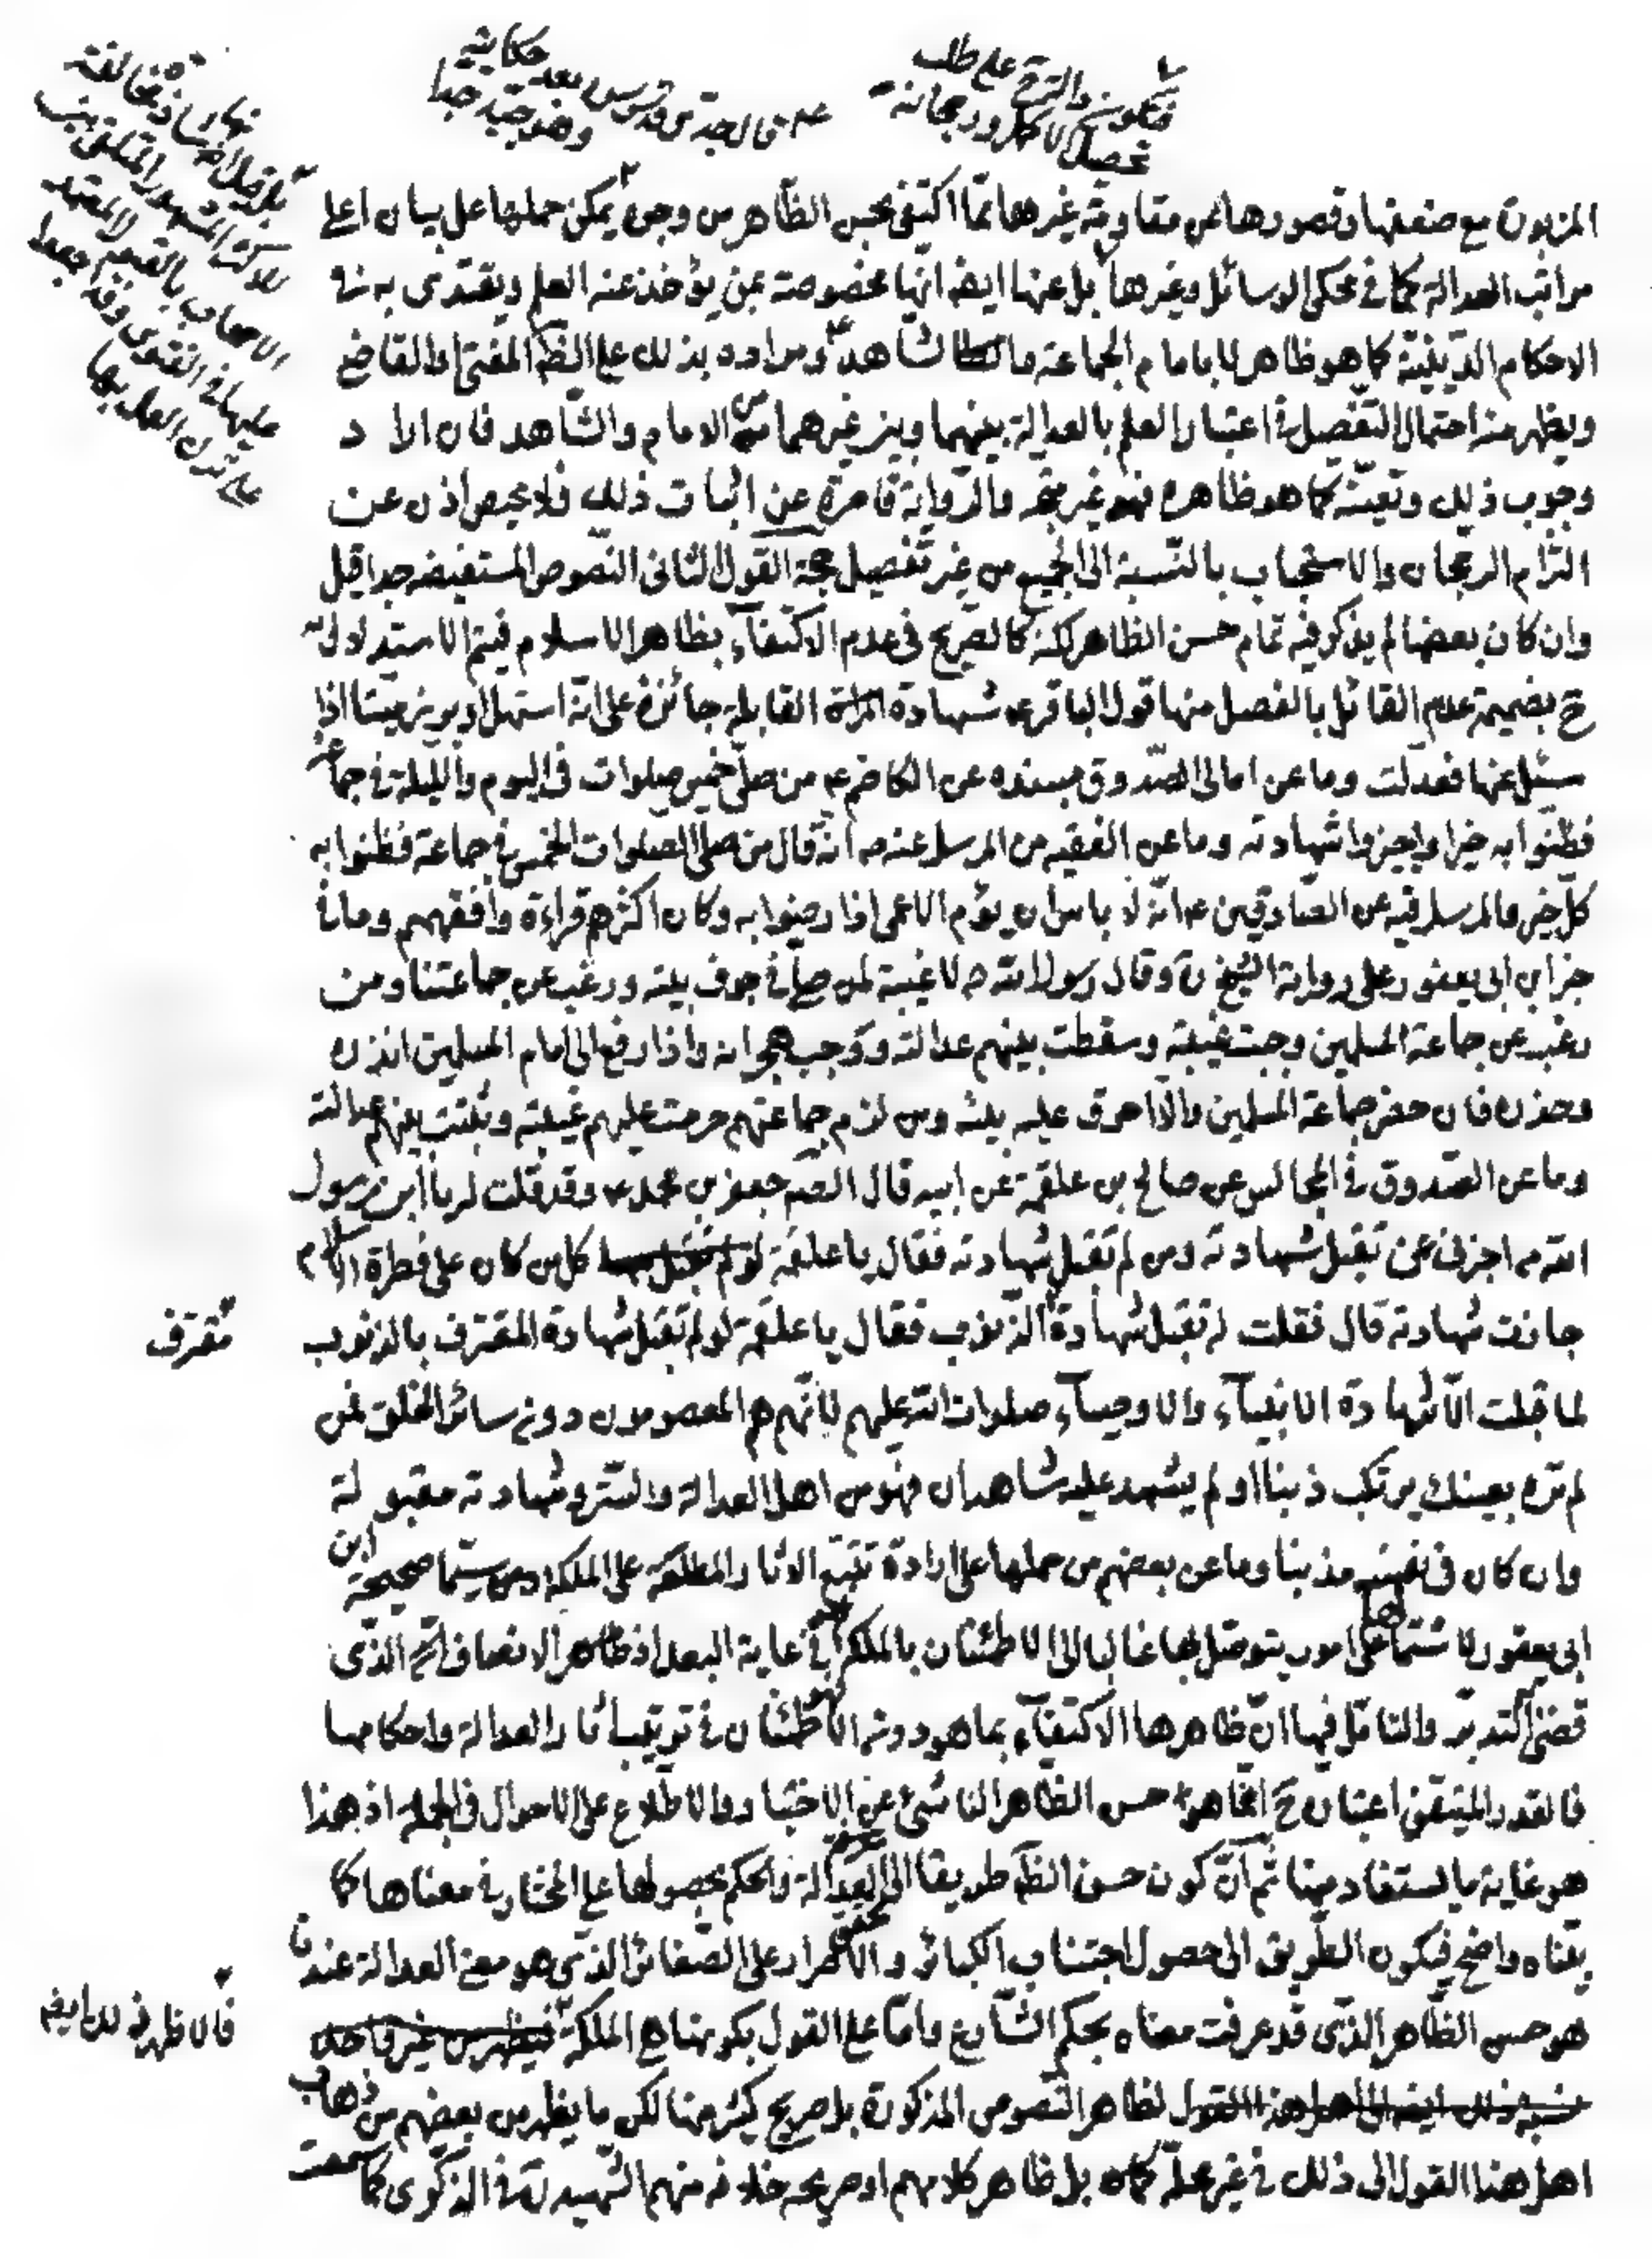 فيكون والترجيح على طلب
تحصيل الأكمل ورجحانه
حكايته
وهو جيد جدا
نهاية مخالفة
للأكثر المشهور
الأصحاب بالقبول لا
عليها في الفتوى وقد جعوا
على ترك العمل بها
المزبورة مع ضعفها وقصورها عن مقاومة غيرها مما اكتفى بحسن الظاهر من وجوه يمكن حملها على بيان اعلى
مراتب العدالة كما في محكي الوسائل وغيرها بل عنها ايضا انها مخصوصة بمن يؤخذ عنه العلم ويقتدى به في
الاحكام الدينية كما هو ظاهر لا بامام الجماعة والشاهد ومراده بذلك على الظ المفتي والقاضي
ويظهر منه احتمال التفصيل في اعتبار العلم بالعدالة بينهما وبين غيرهما من الامام والشاهد فان اراد
وجوب ذلك وتعينه كما هو ظاهره فهو غير متجه والرواية قاصرة عن اثبات ذلك فلا محيص اذن عن
التزام الرجحان والاستحباب بالنسبة الى الجميع من غير تفصيل حجة القول الثاني النصوص المستفيضة جدا قيل
وان كان بعضها لم يذكر فيه تمام حسن الظاهر لكنه كالصريح في عدم الاكتفاء بظاهر الاسلام فيتم الاستدلال به
ح بضميمة عدم القائل بالفصل منها قول الباقر ع شهادة القابلة جائزة على انه استهل او برز ميتا اذا
سئل عنها فعدلت وما عن امالي الصدوق بسنده عن الكاظم ع من صلى خمس صلوات في اليوم والليلة في جماعة
فظنوا به خيرا واجيزوا شهادته وما عن الفقيه من المرسل عنه ص انه قال من صلى الصلوات الخمس في جماعة فظنوا به
كل خير والمرسل فيه عن الصادقين ع انه لا باس ان يؤم الاعمى اذا رضوا به وكان اكثرهم قراءة وافقههم وما في
خبر ابن ابي يعفور على رواية الشيخ ره وقال رسول الله ص لا غيبة لمن صلى في جوف بيته ورغب عن جماعتنا ومن
رغب عن جماعة المسلمين وجبت غيبته وسقطت بينهم عدالته ووجب هجرانه واذا رفع الى امام المسلمين انذره
وحذره فان حضر جماعة المسلمين والا احرق عليه بيته ومن لزم جماعتهم حرمت عليهم غيبته وثبتت بينهم عدالته
وما عن الصدوق في المجالس عن صالح بن علقمة عن ابيه قال الصم جعفر بن محمد ع وقد قلت له يا ابن رسول
الله ص اخبرني عن تقبل شهادته ومن لم تقبل شهادته فقال يا علقمة كل من كان على فطرة الاسلام
جازت شهادته قال فقلت له تقبل شهادة الذنوب فقال يا علقمة لو لم تقبل شهادة المقترف بالذنوب
مقترف
لما قبلت الا شهادة الانبياء والاوصياء صلوات الله عليهم لانهم هم المعصومون دون سائر الخلق فمن
لم تره بعينك يرتكب ذنبا او لم يشهد عليه شاهدان فهو من اهل العدالة والستر وشهادته مقبولة
وان كان في نفسه مذنبا وما عن بعضهم من حملها على ارادة تتبع الاثار المطلعة على الملكة سيما صحيحة ابن
ابي يعفور لاشتمالها على امور يتوصل بها غالبا الى الاطمئنان بالملكة في غاية البعد اذ ظاهر الانصاف الذي
قضى التدبر والتامل فيها ان ظاهرها الاكتفاء بما هو دون الاطمئنان في ترتيب اثار العدالة واحكامها
فالقدر المتيقن اعتباره ح انما هو حسن الظاهر الناشئ عن الاختبار والاطلاع على الاحوال في الجملة اذ هذا
هو غاية ما يستفاد منها ثم ان كون حسن الظ طريقا الى العدالة والحكم بحصولها على المختار في معناها كما
بيناه واضح فيكون الطريق الى حصول اجتناب الكبائر والاصرار على الصغائر الذي هو معنى العدالة عندنا
هو حسن الظاهر الذي قد عرفت معناه بحكم الشارع واما على القول بكونها هي الملكة فيظهر من غير واحد
فالاظهر ذلك ايضا
نسبة ذلك ايضا الى اهل هذا القول لظاهر النصوص المذكورة بل صريح كثير منها لكن ما يظهر من بعضهم من ذهاب
اهل هذا القول الى ذلك في غير محله بل ظاهر كلامهم او صريحه خلافه منهم الشهيد ره في الذكرى كما سمعت